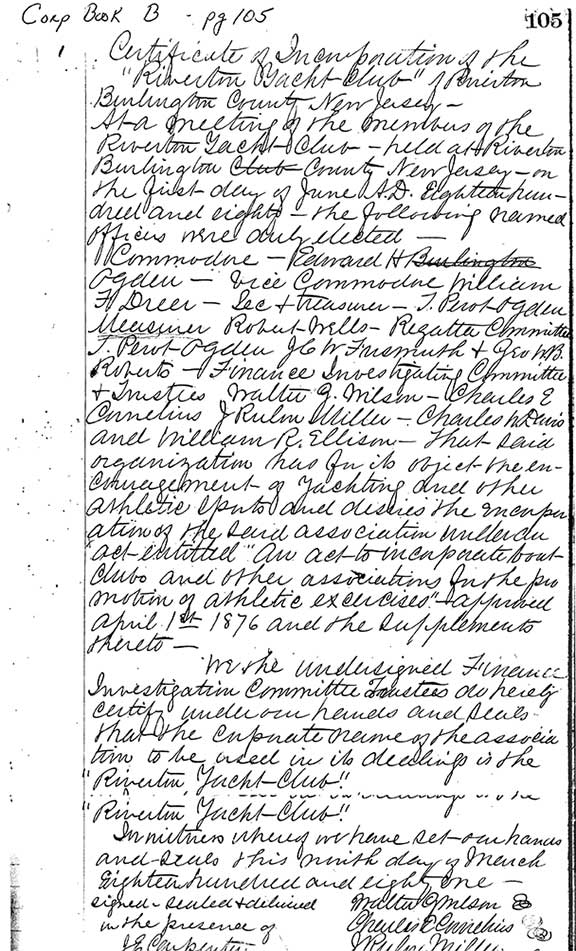 Corp Book B - pg 105
105
Certificate of Incorporation of the
"Riverton Yacht Club" of Riverton
Burlington County New Jersey —
At a meeting of the members of the
Riverton Yacht Club — held at Riverton
Burlington Club County New Jersey — on
the first day of June A.D. Eighteen hun-
dred and eighty — the following named
officers were duly elected —
Commodore — Edward H Burlington
Ogden — Vice Commodore William
F Dreer — Sec & Treasurer — J. Perot Ogden
Measurer Robert Wells — Regatta Committee
J. Perot Ogden J C W Frismuth & Geo W B.
Roberts — Finance Investigating Committee
& Trustees Walter G. Wilson — Charles E
Cornelius J Rulon Miller — Charles W Davis
and William R. Ellison — that said
organization has for its object the en-
couragement of Yachting and other
athletic sports and desires the incorpor
ation of the said association under an
act entitled "An act to incorporate boat
clubs and other associations for the pro
motion of athletic exercises" — approved
April 1st 1876 and the supplements
thereto —
We the undersigned Finance
Investigation Committee Trustees do hereby
certify under our hands and seals
that the corporate name of the associa
tion to be used in its dealings is the
"Riverton Yacht Club"
"Riverton Yacht Club."
In witness whereof we have set our hands
and seals this ninth day of March
Eighteen hundred and eighty one —
signed sealed & delivered Walter G Wilson
in the presence of Charles E Cornelius
J E Carpenter J Rulon Miller